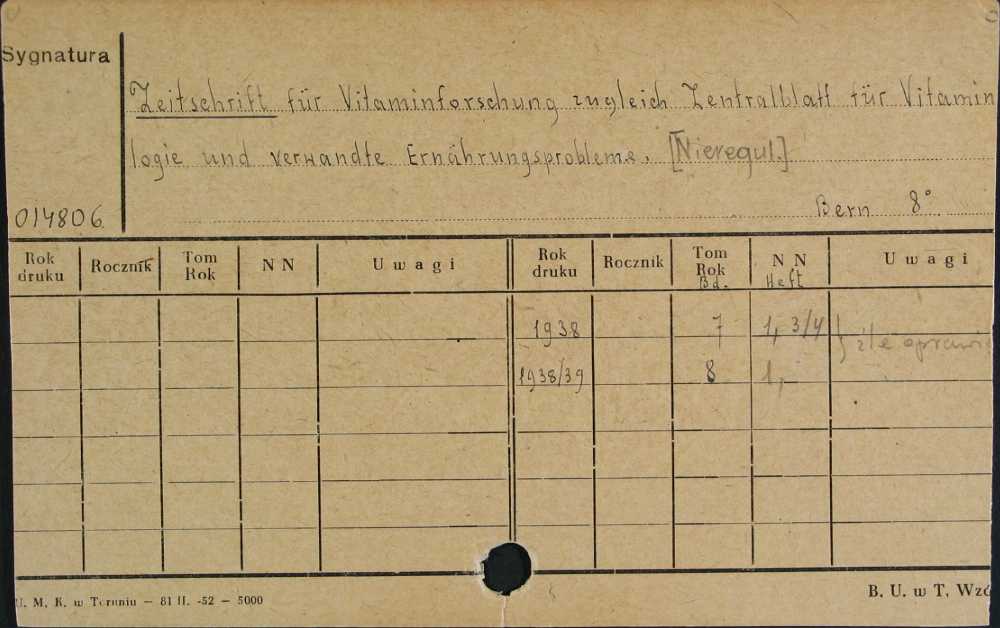 Sygnatura
Zeitschrift für Vitaminforschung zugleich Zentralblatt für Vitamin
logie und verwandte Ernährungsprobleme. [Nieregul.]
014806 Bern 8°
Rok druku Rocznik Tom Rok N N Uwagi Rok druku Rocznik Tom Rok Bd. N N Heft Uwagi
1938 7 1, 3/4 } źle opraw
1938/39 8 1,-
U. M. K. w Toruniu — 81 II. -52 — 5000 B. U. w T. Wzó